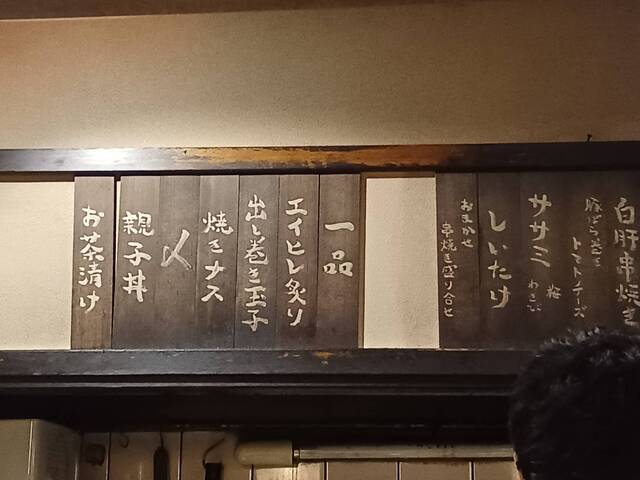 白肝串焼き
豚ばら巻き
トマトチーズ
ササミ
梅
わさび
しいたけ
おまかせ
串焼き盛り合せ
一品
エイヒレ炙り
出し巻き玉子
焼きナス
〆
親子丼
お茶漬け